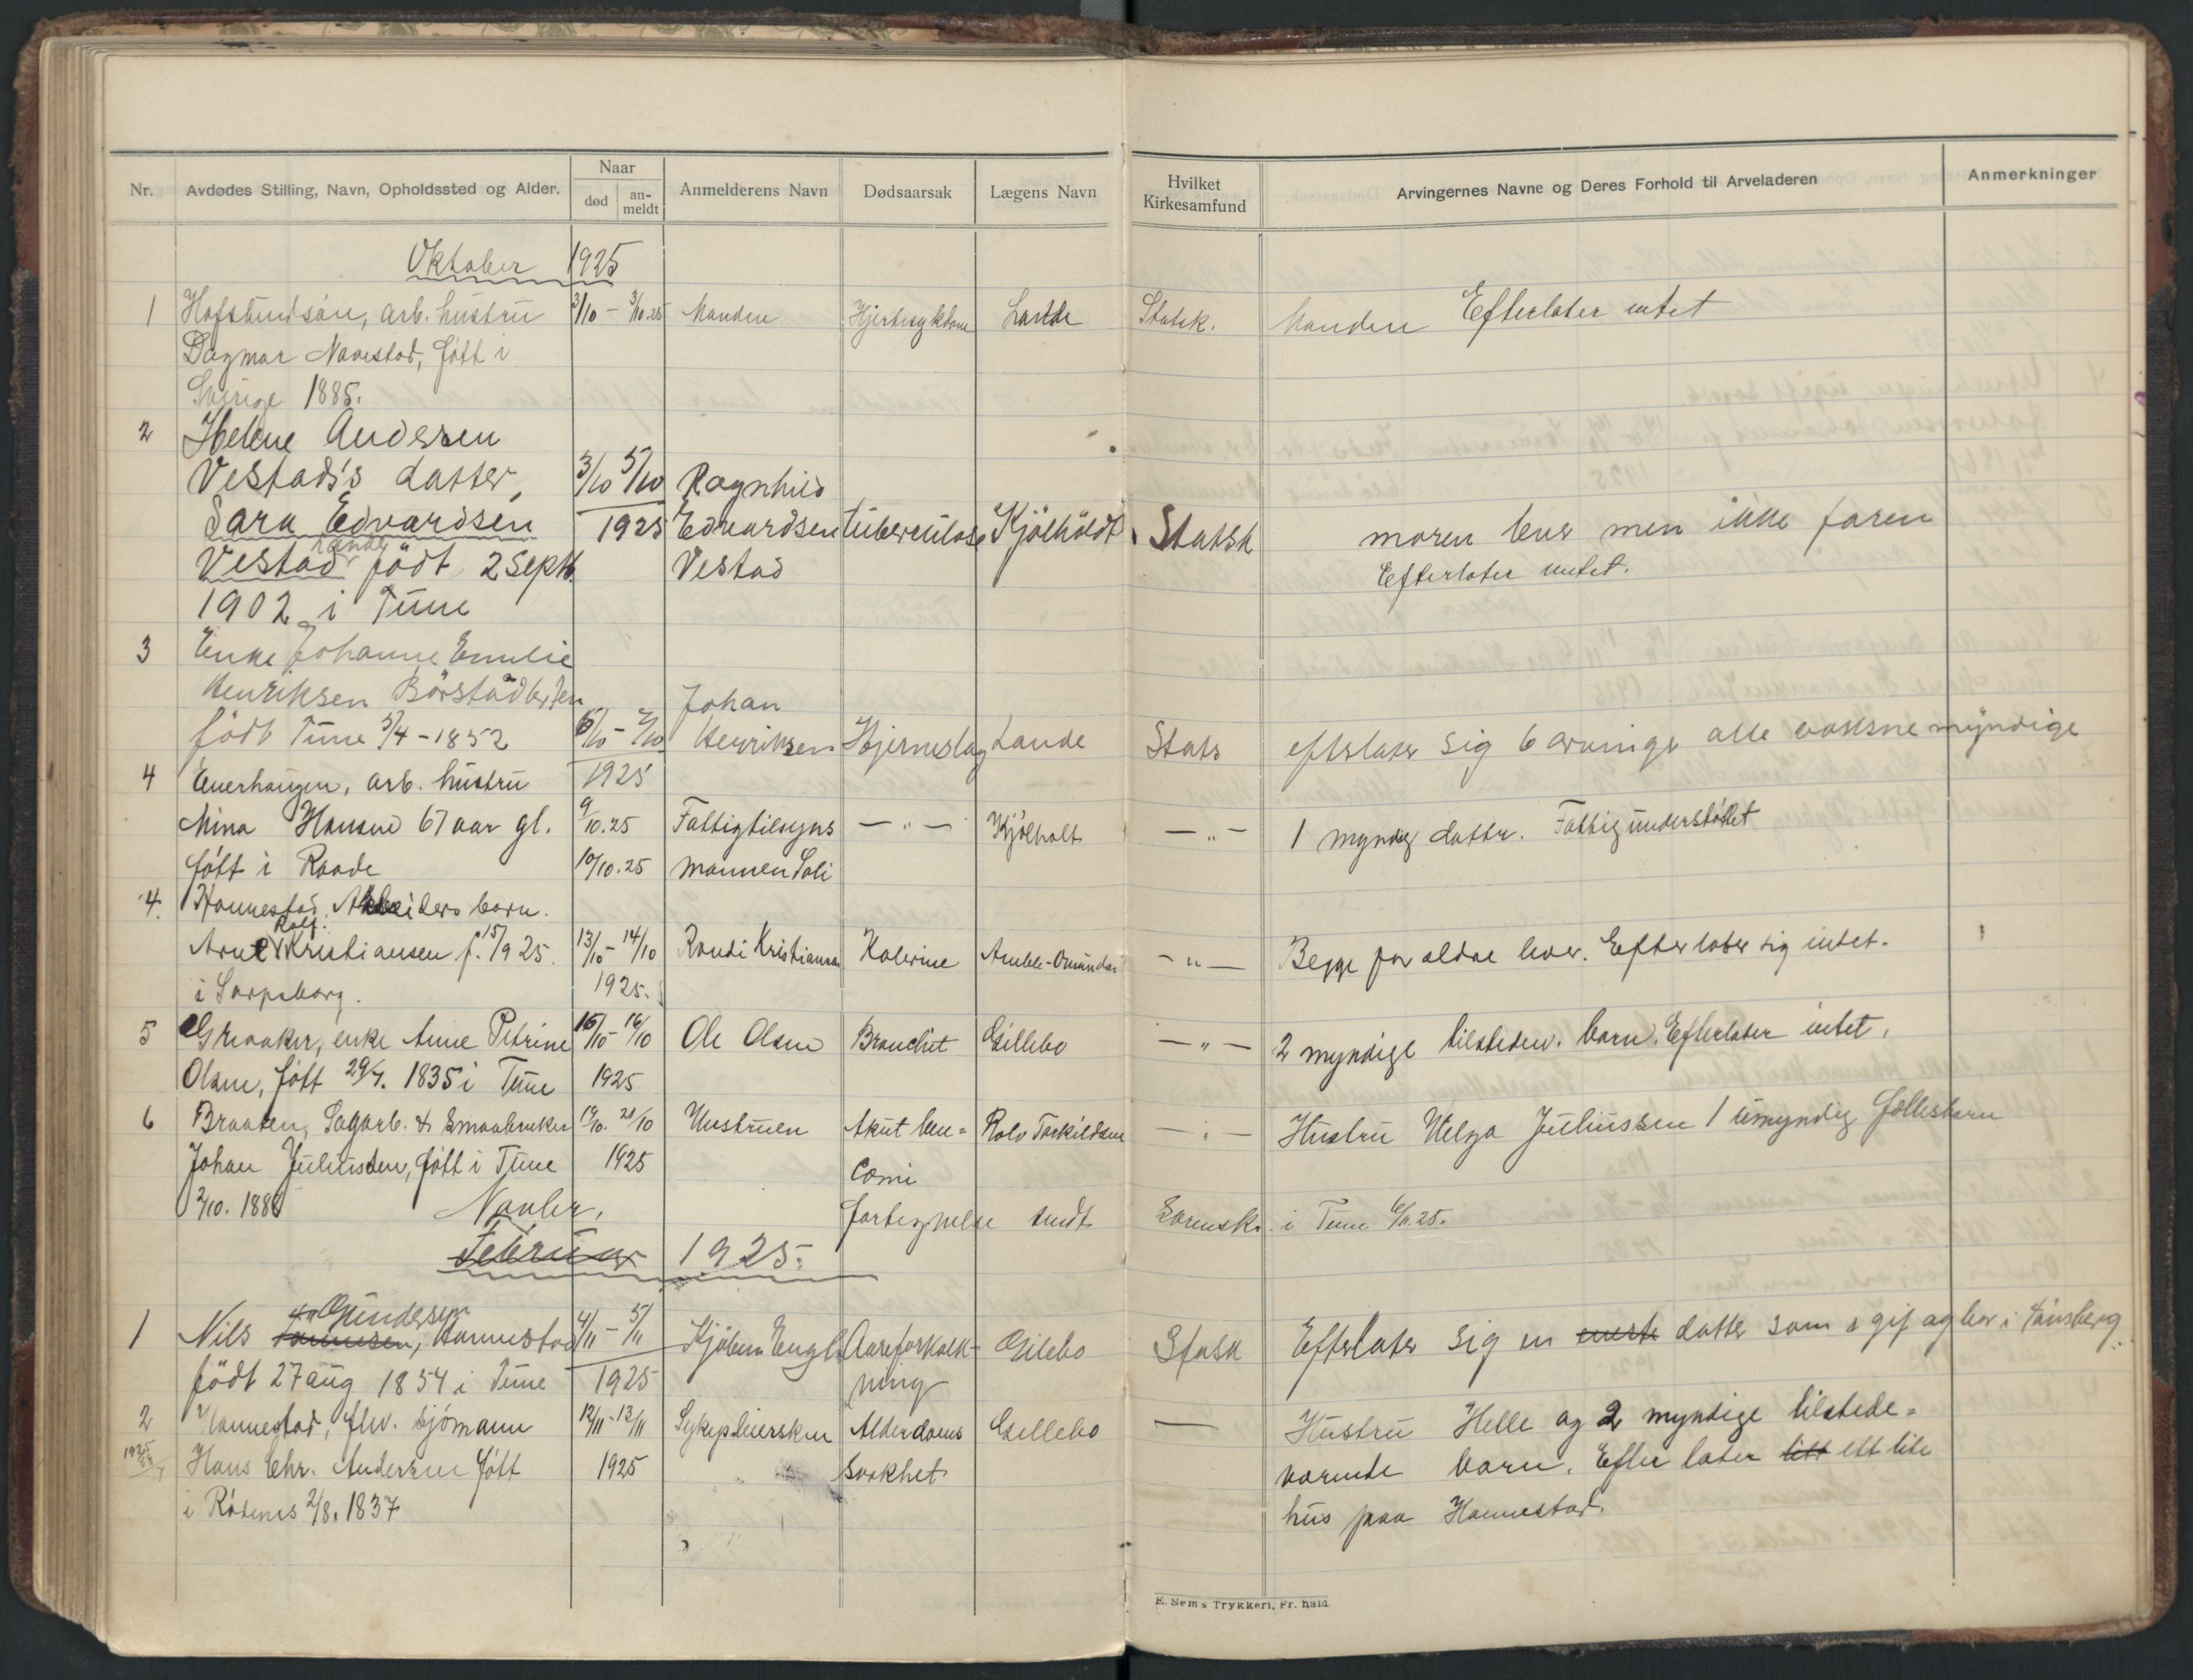 Nr. Avdødes Stilling, Navn, Opholdssted og Alder. Naar død an-meldt Anmelderens Navn Dødsaarsak Lægens Navn Hvilket Kirkesamfund Arvingernes Navne og Deres Forhold til Arveladeren Anmerkninger
Oktober 1925
1 Hafslundsøn, arb. hustru 3/10 - 3/10.25 Manden Hjertesykdom Lande Statsk. Manden Efterlater intet
Dagmar Navestad, født i
Sverige 1885.
2 Helene Andersen
Vestads datter, 3/10 5/10 Ragnhild
Sara Edvardsen 1925 Edvardsen tuberculose Kjölholdt Statsk moren lever men ikke faren
Vestad født 2 Septb Vestad Efterlater intet.
1902 i Tune
3 Enke Johanne Emilie
Henriksen Börstad Johan
födt Tune 5/4 - 1852 6/10 - 7/10 Henriksen Hjerneslag Lande Stats efterlater sig 6 arvinger alle voksne myndige
4 Enerhaugen, arb. hustru 1925
Mina Hansen 67 aar gl. 9/10.25 Fattigtilsyns — " — Kjølholt — " — 1 myndig datter. Fattigunderstøttet
født i Raade 10/10.25 mannen Soli
4. Hannestad. Arbeiders barn.
Rolf.
Arne Kristiansen f. 15/9 25. 13/10 - 14/10 Randi Kristiansen Kolerine Amble-Omundsen — " — Begge foraldre lever. Efterlater sig intet.
i Sarpsborg. 1925.
5 Graaker, enke Anne Petrine 15/10 - 16/10 Ole Olsen Bronchit Gillebo — " — 2 myndige tilsteden. barn. Efterlater intet.
Olsen, født 29/7. 1835 i Tune 1925
6 Braaten, Sagarb. & Smaabruker 19/10. 21/10 Hustruen Akut leu= Rolv Torkildsen — " — Hustru Helga Juliussen 1 umyndig fællesbarn
Johan Juliussen, født i Tune 1925 cæmi
2/10. 188 Novbr. fortegnelse sendt Sorensk. i Tune 6/11.25.
Februar 1925.
Gundersen
1 Nils, Hannestad 4/11 - 5/11 Kjöbm Engh Aareforkalk- Gilebo Statsk Efterlater sig en eneste datter som e gif og bor i tönsberg
født 27 aug 1854 i Tune 1925 ning
2 Hannestad, fhv. sjømann 12/11 - 13/11 Sykepleiersken Alderdoms Gillebo — Hustru Helle og 2 myndige tilstede=
Hans Chr. Andersen født 1925 svakhet værende barn. Efter later litt ett lite
i Rödenes 2/8. 1837 hus paa Hannestad.
E. Sem's Trykkeri, Fr. hald.